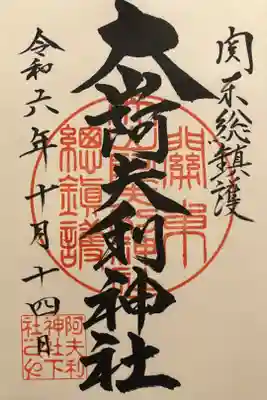 関東総鎮護
大山阿夫利神社
令和六年十月十四日
關東
總鎮護
阿夫利
神社下
社之印